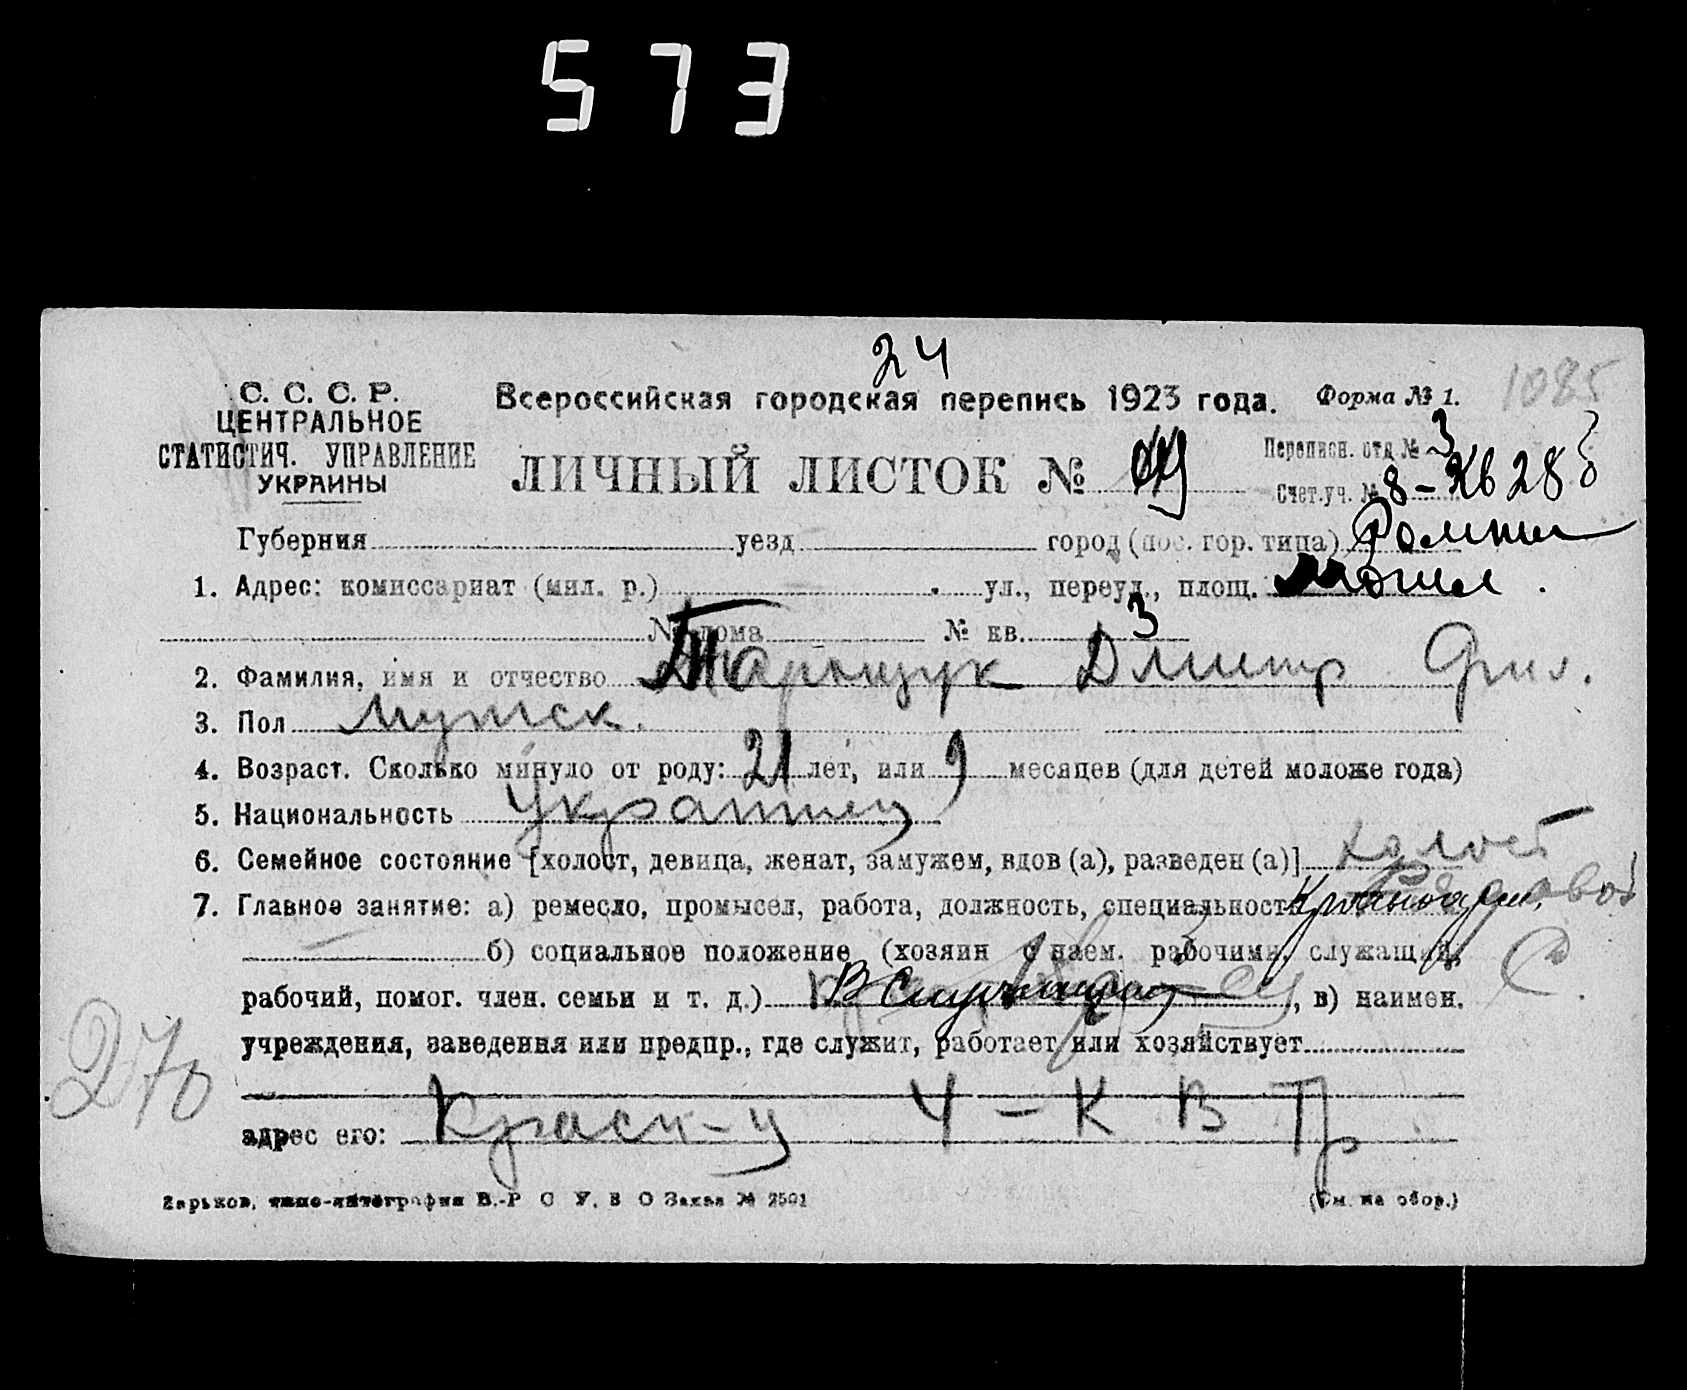 573
24
С. С. С. Р.
ЦЕНТРАЛЬНОЕ
СТАТИСТИЧ. УПРАВЛЕНИЕ
УКРАИНЫ
Всероссийская городская перепись 1923 года.
Форма № 1.
1085
ЛИЧНЫЙ ЛИСТОК №
Переписн. отд. № 3
Счет.уч. № 8 - Кв 28
Губерния уезд город (пос. гор. типа) Ромны
1. Адрес: комиссариат (мил. р.) ул., переул., площ.
№ дома № кв. 3
2. Фамилия, имя и отчество Таращук Дмитр Фил.
3. Пол мужск.
4. Возраст. Сколько минуло от роду: 21 лет, или 9 месяцев (для детей моложе года)
5. Национальность Украинец
6. Семейное состояние [холост, девица, женат, замужем, вдов (а), разведен (а)] холост
7. Главное занятие: а) ремесло, промысел, работа, должность, специальность Красноарм.
б) социальное положение (хозяин с наем. рабочими, служащий,
рабочий, помог. член. семьи и т. д.) , в) наимен.
учреждения, заведения или предпр., где служит, работает или хозяйствует
270
адрес его: Краск-у 4 - К В Пр
Харьков, типо-литография В.-Р С У. В О Заказ № 2501
(См. на обор.)